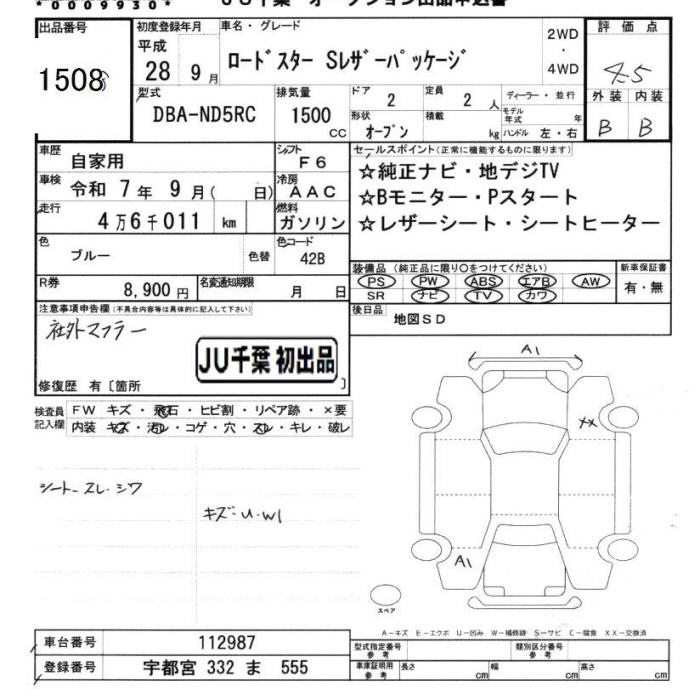 *0009930*
JU千葉 オークション出品申込書
出品番号 初度登録年月 車名・グレード 評価点
1508
平成 28 9月 ロードスター Sレザーパッケージ 2WD・4WD 4.5
外装 内装
B B
型式 排気量 ドア 定員 ディーラー・並行
DBA-ND5RC 1500 cc 2 2 人 モデル年式 年
形状 積載
オープン kg ハンドル 左・右
車歴 自家用 シフト F6 セールスポイント(正常に機能するものに限ります)
☆純正ナビ・地デジTV
車検 令和 7年 9月( 日) 冷房 AAC
☆Bモニター・Pスタート
走行 4万6千011 km 燃料 ガソリン
☆レザーシート・シートヒーター
色 ブルー 色替 色コード 42B
装備品(純正品に限り○をつけてください) 新車保証書
PS PW ABS エアB AW 有・無
SR ナビ TV カワ
R券 8,900円 名変通知期限 月 日
後日品 地図SD
注意事項申告欄(不具合内容等は具体的に記入して下さい)
社外マフラー
JU千葉 初出品
修復歴 有〔箇所 〕
検査員記入欄
FW キズ・飛石・ヒビ割・リペア跡・×要
内装 キズ・汚レ・コゲ・穴・スレ・キレ・破レ
A1
XX
シートスレ・シワ
キズ・U・W1
A1
スペア
A-キズ E-エクボ U-凹み W-補修跡 S-サビ C-腐食 XX-交換済
車台番号 112987
型式指定番号 参考 類別区分番号 参考
登録番号 宇都宮 332 ま 555
車庫証明用 参考 長さ cm 幅 cm 高さ cm